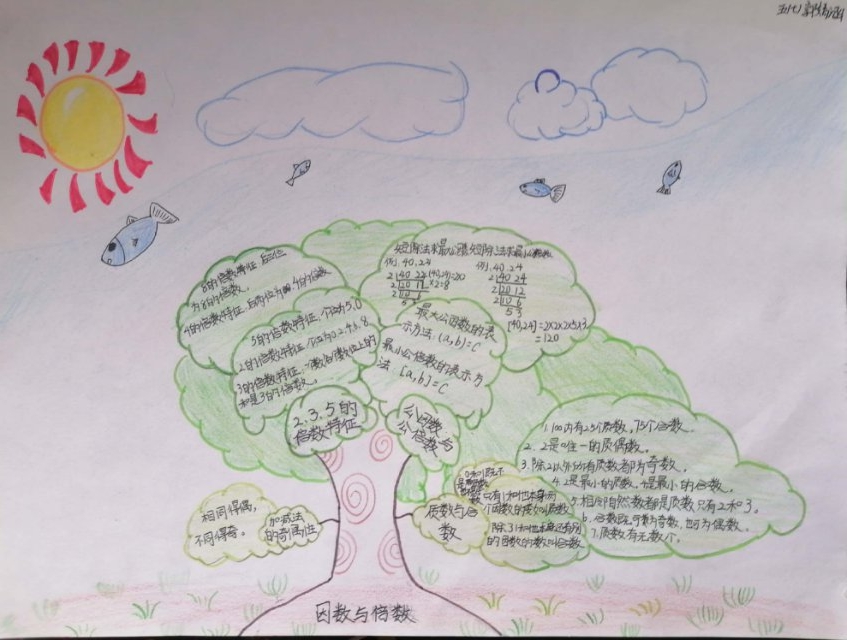 8的倍数特征:后三位
为8的倍数。
4的倍数特征:后两位为00 4的倍数
5的倍数特征:个位为5.0
2的倍数特征:个位为0.2.4.6.8
3的倍数特征:一个数各个数位上的
和是3的倍数。
2.3.5的
倍数特征
短除法求最大公因数
例.40.24
2 40 24 (40,24)=2×2
2 20 12 ×2=8
2 10 6
5 3
短除法求最小公倍数
例.40.24
2 40 24
2 20 12
2 10 6
5 3
[40,24]=2×2×2×5×3
=120
最大公因数的表
示方法:(a,b)=C
最小公倍数的表示方
法:[a,b]=C
公因数与
公倍数
1.100内有25个质数,75个合数.
2. 2是唯一的质偶数.
3.除2以外所有质数都为奇数.
4.2是最小的质数,4是最小的合数.
5.相邻自然数都是质数只有2和3。
6.合数既可数为奇数,也可为偶数.
7.质数有无数个.
只有1和他本身两
个因数的数叫质数
除了1和他本身还有别
的因数的数叫合数
质数与合
数
相同得偶,
不同得奇。
加减法
的奇偶性
因数与倍数